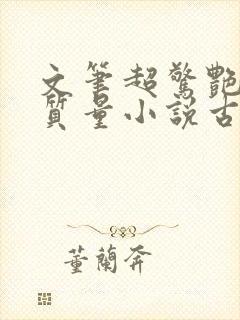 文筆超驚艷
質量小說古
董蘭奔